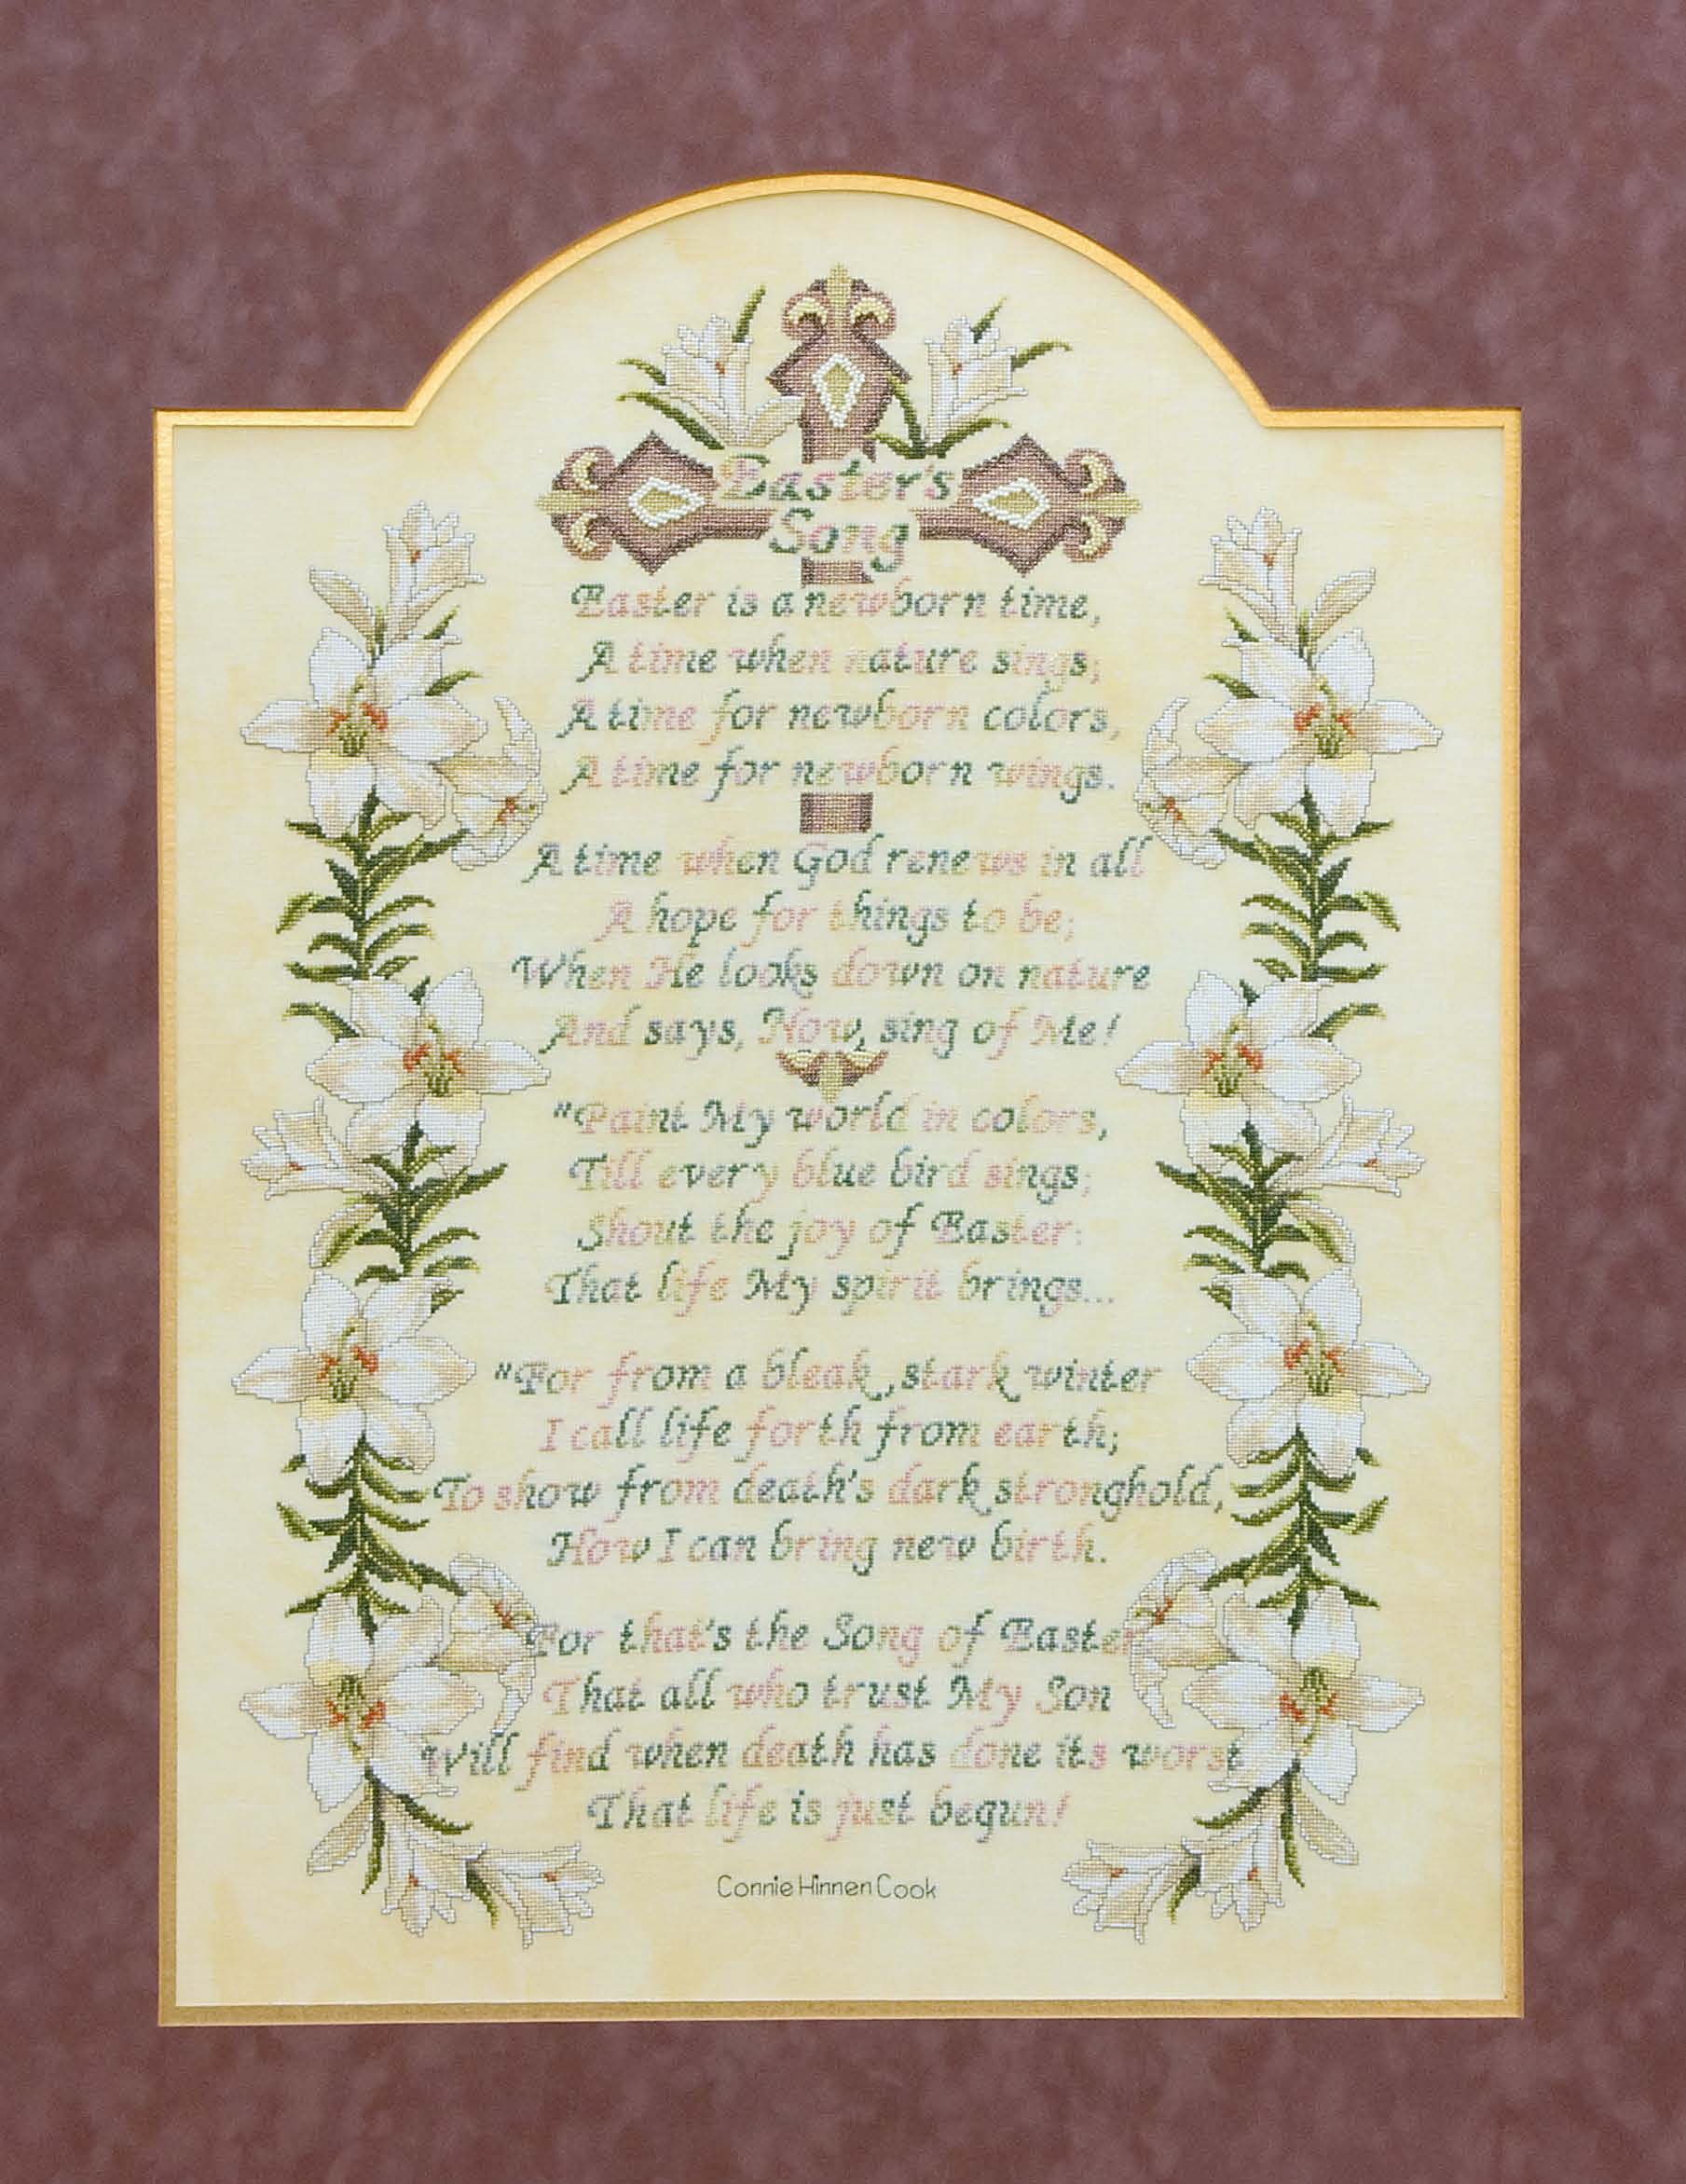 Easter's
Song
Easter is a newborn time,
A time when nature sings;
A time for newborn colors,
A time for newborn wings.
A time when God renews in all
A hope for things to be;
When He looks down on nature
And says, Now, sing of Me!
"Paint My world in colors,
Till every blue bird sings;
Shout the joy of Easter:
That life My spirit brings...
"For from a bleak, stark winter
I call life forth from earth;
To show from death's dark stronghold,
How I can bring new birth.
For that's the Song of Easter
That all who trust My Son
Will find when death has done its worst
That life is just begun!
Connie Hinnen Cook